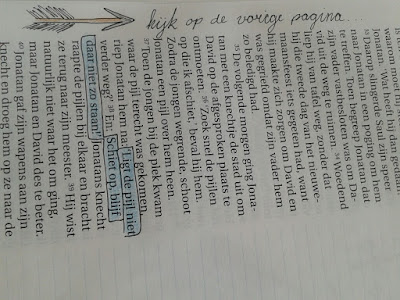 kijk op de vorige pagina...
waarom moet hij
Jonatan. ‘Wat heeft hij dan gedaan
33 Daarop slingerde Saul zijn speer
naar Jonatan in een poging om hem
te treffen. Toen begreep Jonatan dat
zijn vader vastbesloten was om Da-
vid uit de weg te ruimen. 34 Woedend
liep hij van tafel weg, zonder dat
hij op die tweede dag van het nieuwe-
maansfeest iets gegeten had, want
hij maakte zich zorgen om David en
was gegriefd dat zijn vader hem
zo beledigd had.
35 De volgende morgen ging Jona-
tan met een knechtje de stad uit om
David op de afgesproken plaats te
ontmoeten. 36 ‘Zoek snel de pijlen
op die ik afschiet,’ beval hij hem.
Zodra de jongen wegrende, schoot
Jonatan een pijl over hem heen.
37 Toen de jongen bij de plek kwam
waar de pijl terecht was gekomen,
riep Jonatan hem na: ‘Ligt de pijl niet
verder weg?’ 38 En: ‘Schiet op, blijf
daar niet zo staan!’ Jonatans knecht
raapte de pijlen bij elkaar en bracht
ze terug naar zijn meester. 39 Hij wist
natuurlijk niet waar het om ging,
maar Jonatan en David des te beter.
40 Jonatan gaf zijn wapens aan zijn
knecht en droeg hem op ze naar de